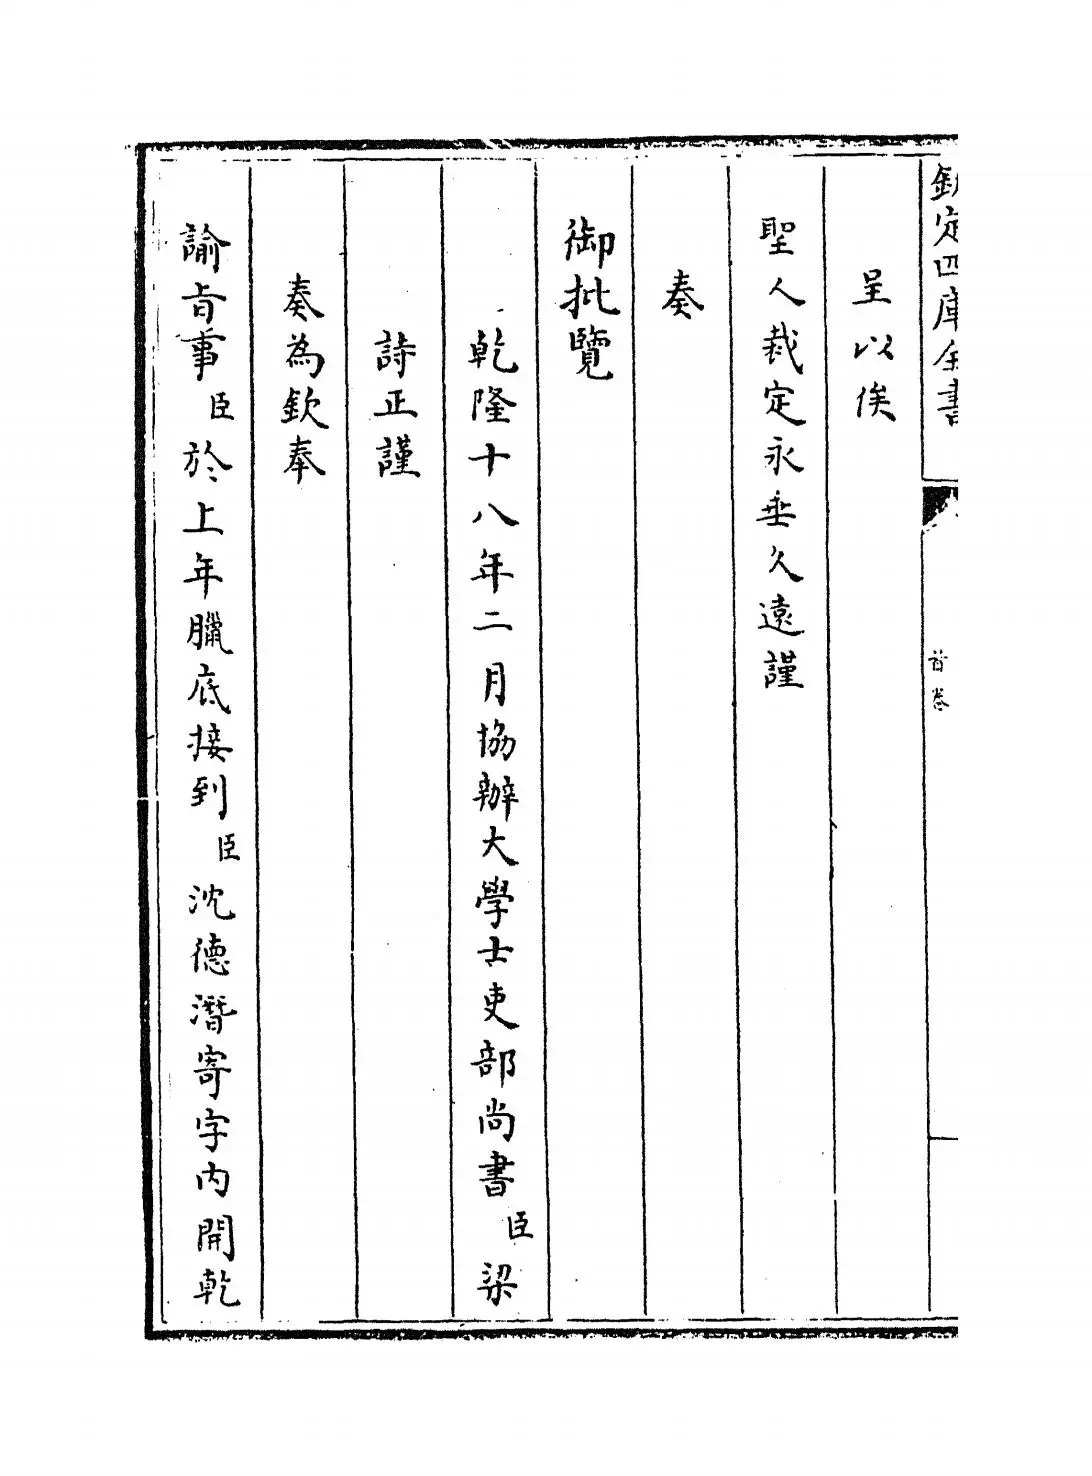 欽定四庫全書
首卷
呈以俟
聖人裁定永垂久遠謹
奏
御批覽
乾隆十八年二月協辦大學士吏部尚書臣梁
詩正謹
奏為欽奉
諭旨事臣於上年臘底接到臣沈德潛寄字內開乾